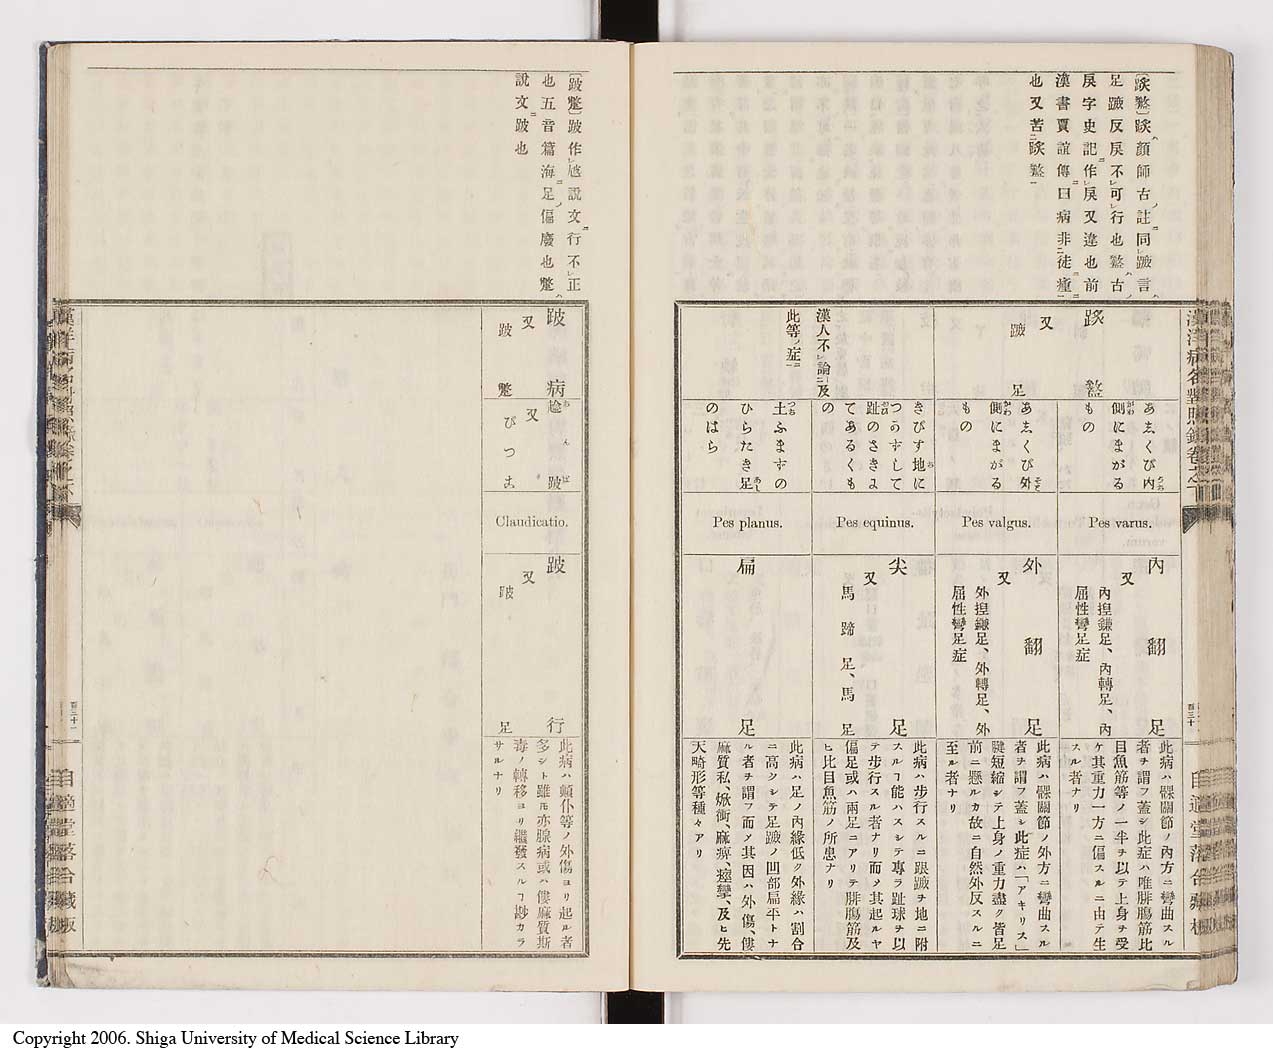 〔䠇盭〕䠇顔師古註同蹠言
足蹠反戾不可行也盭古
戾字史記作戾又違也前
漢書賈誼傳曰病非徒瘇
也又苦䠇盭
䠇盭
又
蹠足
漢人不論及
此等ノ症
あしくび内
側にまがる
もの
あしくび外
側にまがる
もの
きびす地に
つかずして
趾のさきよ
てあるくも
の
土ふまずの
ひらたき足
のはら
Pes varus.
Pes valgus.
Pes equinus.
Pes planus.
內翻足
又
內揑鎌足、內轉足、內
屈性彎足症
外翻足
又
外揑鎌足、外轉足、外
屈性彎足症
尖足
又
馬蹄足、馬足
扁足
此病ハ髁關節ノ內方ニ彎曲スル
者ヲ謂フ蓋シ此症ハ唯腓膓筋比
目魚筋等ノ一半ヲ以テ上身ヲ受
ケ其重力一方ニ偏スルニ由テ生
スル者ナリ
此病ハ髁關節ノ外方ニ彎曲スル
者ヲ謂フ蓋シ此症ハ「アキリス」
腱短縮シテ上身ノ重力盡ク皆足
前ニ懸ルカ故ニ自然外反スルニ
至ル者ナリ
此病ハ步行スルニ跟蹠ヲ地ニ附
スルヿ能ハスシテ專ラ趾球ヲ以
テ步行スル者ナリ而メ其起ルヤ
偏足或ハ兩足ニアリテ腓膓筋及
ヒ比目魚筋ノ所患ナリ
此病ハ足ノ內緣低ク外緣ハ割合
ニ高クシテ足蹠ノ凹部扁平トナ
ル者ヲ謂フ而メ其因ハ外傷、僂
麻質私、焮衝、麻痺、瘂攣、及ヒ先
天畸形等種々アリ
漢洋病名對照錄卷之下
百三十
〔跛躄〕跛作㝿說文行不正
也五音篇海足偏廢也躄
說文跛也
跛病
又
跛躄
尳跛
又
びつこ
Claudicatio.
跛行
又
跛足
此病ハ顚仆等ノ外傷ヨリ起ル者
多シト雖モ亦腺病或ハ僂麻質斯
毒ノ轉移ヨリ繼發スルヿ尠カラ
サルナリ
百三十一
Copyright 2006. Shiga University of Medical Science Library